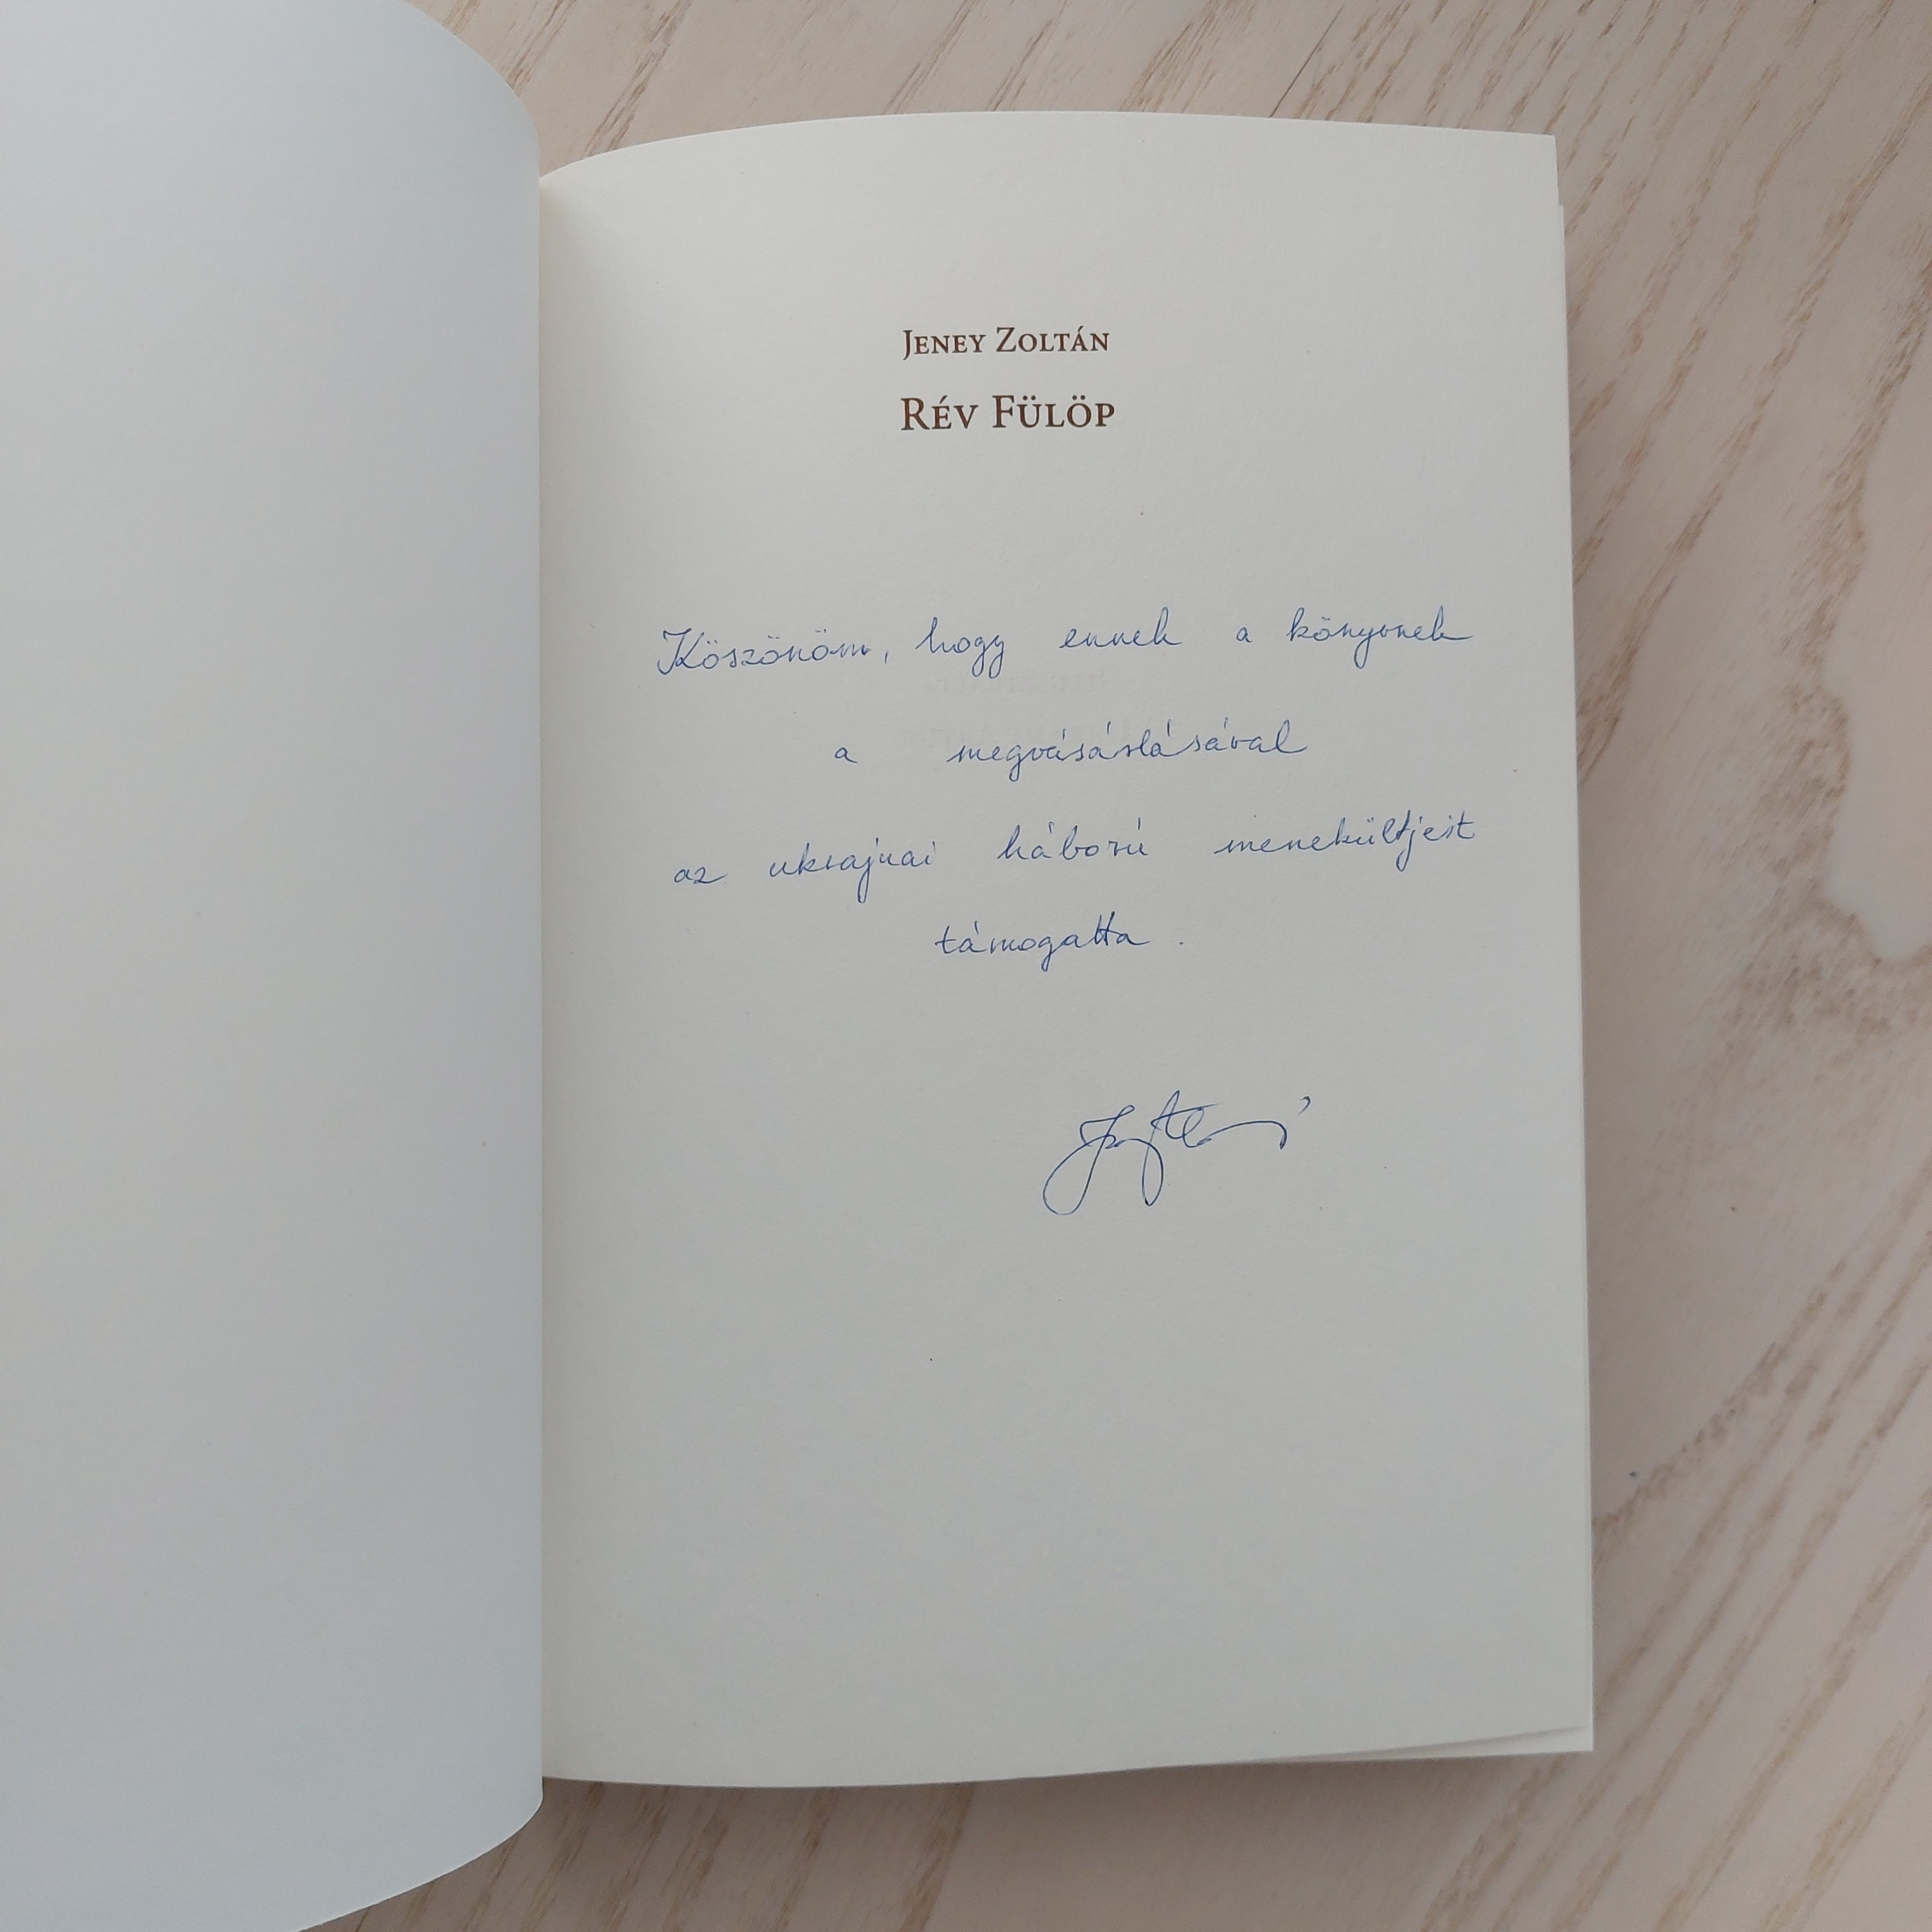 JENEY ZOLTÁN
RÉV FÜLÖP
Köszönöm, hogy ennek a könyvnek
a megvásárlásával
az ukrajnai háború menekültjeit
támogatta.